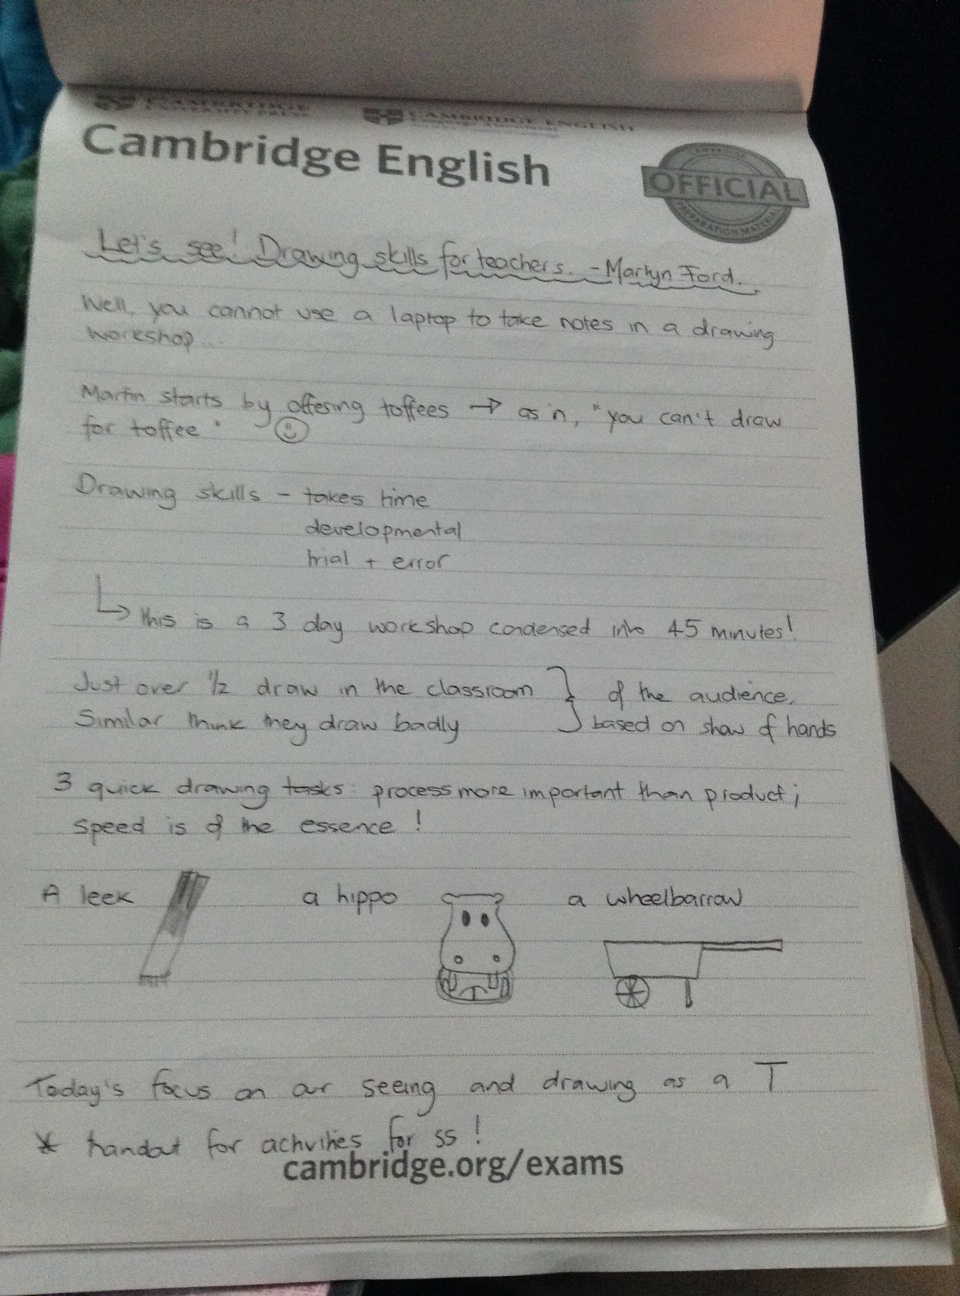 CAMBRIDGE UNIVERSITY PRESS
CAMBRIDGE ENGLISH
Cambridge English
OFFICIAL
PREPARATION MATERIAL
Let's see! Drawing skills for teachers. - Martyn Ford.
Well, you cannot use a laptop to take notes in a drawing
workshop...
Martin starts by offering toffees → as in, "you can't draw
for toffee" ☺
Drawing skills - takes time
developmental
trial + error
↳ this is a 3 day workshop condensed into 45 minutes!
Just over 1/2 draw in the classroom } of the audience,
Similar think they draw badly } based on show of hands
3 quick drawing tasks: process more important than product;
speed is of the essence!
A leek a hippo a wheelbarrow
Today's focus on our seeing and drawing as a T
* handout for activities for ss!
cambridge.org/exams